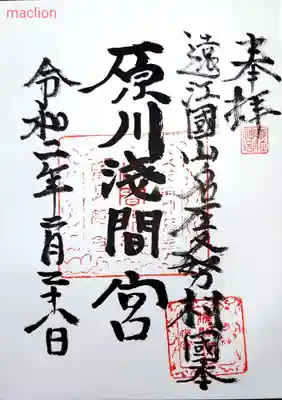 maclion
奉拝
遠江國山名郡久努村國本
原川浅間宮
令和二年二月二十八日